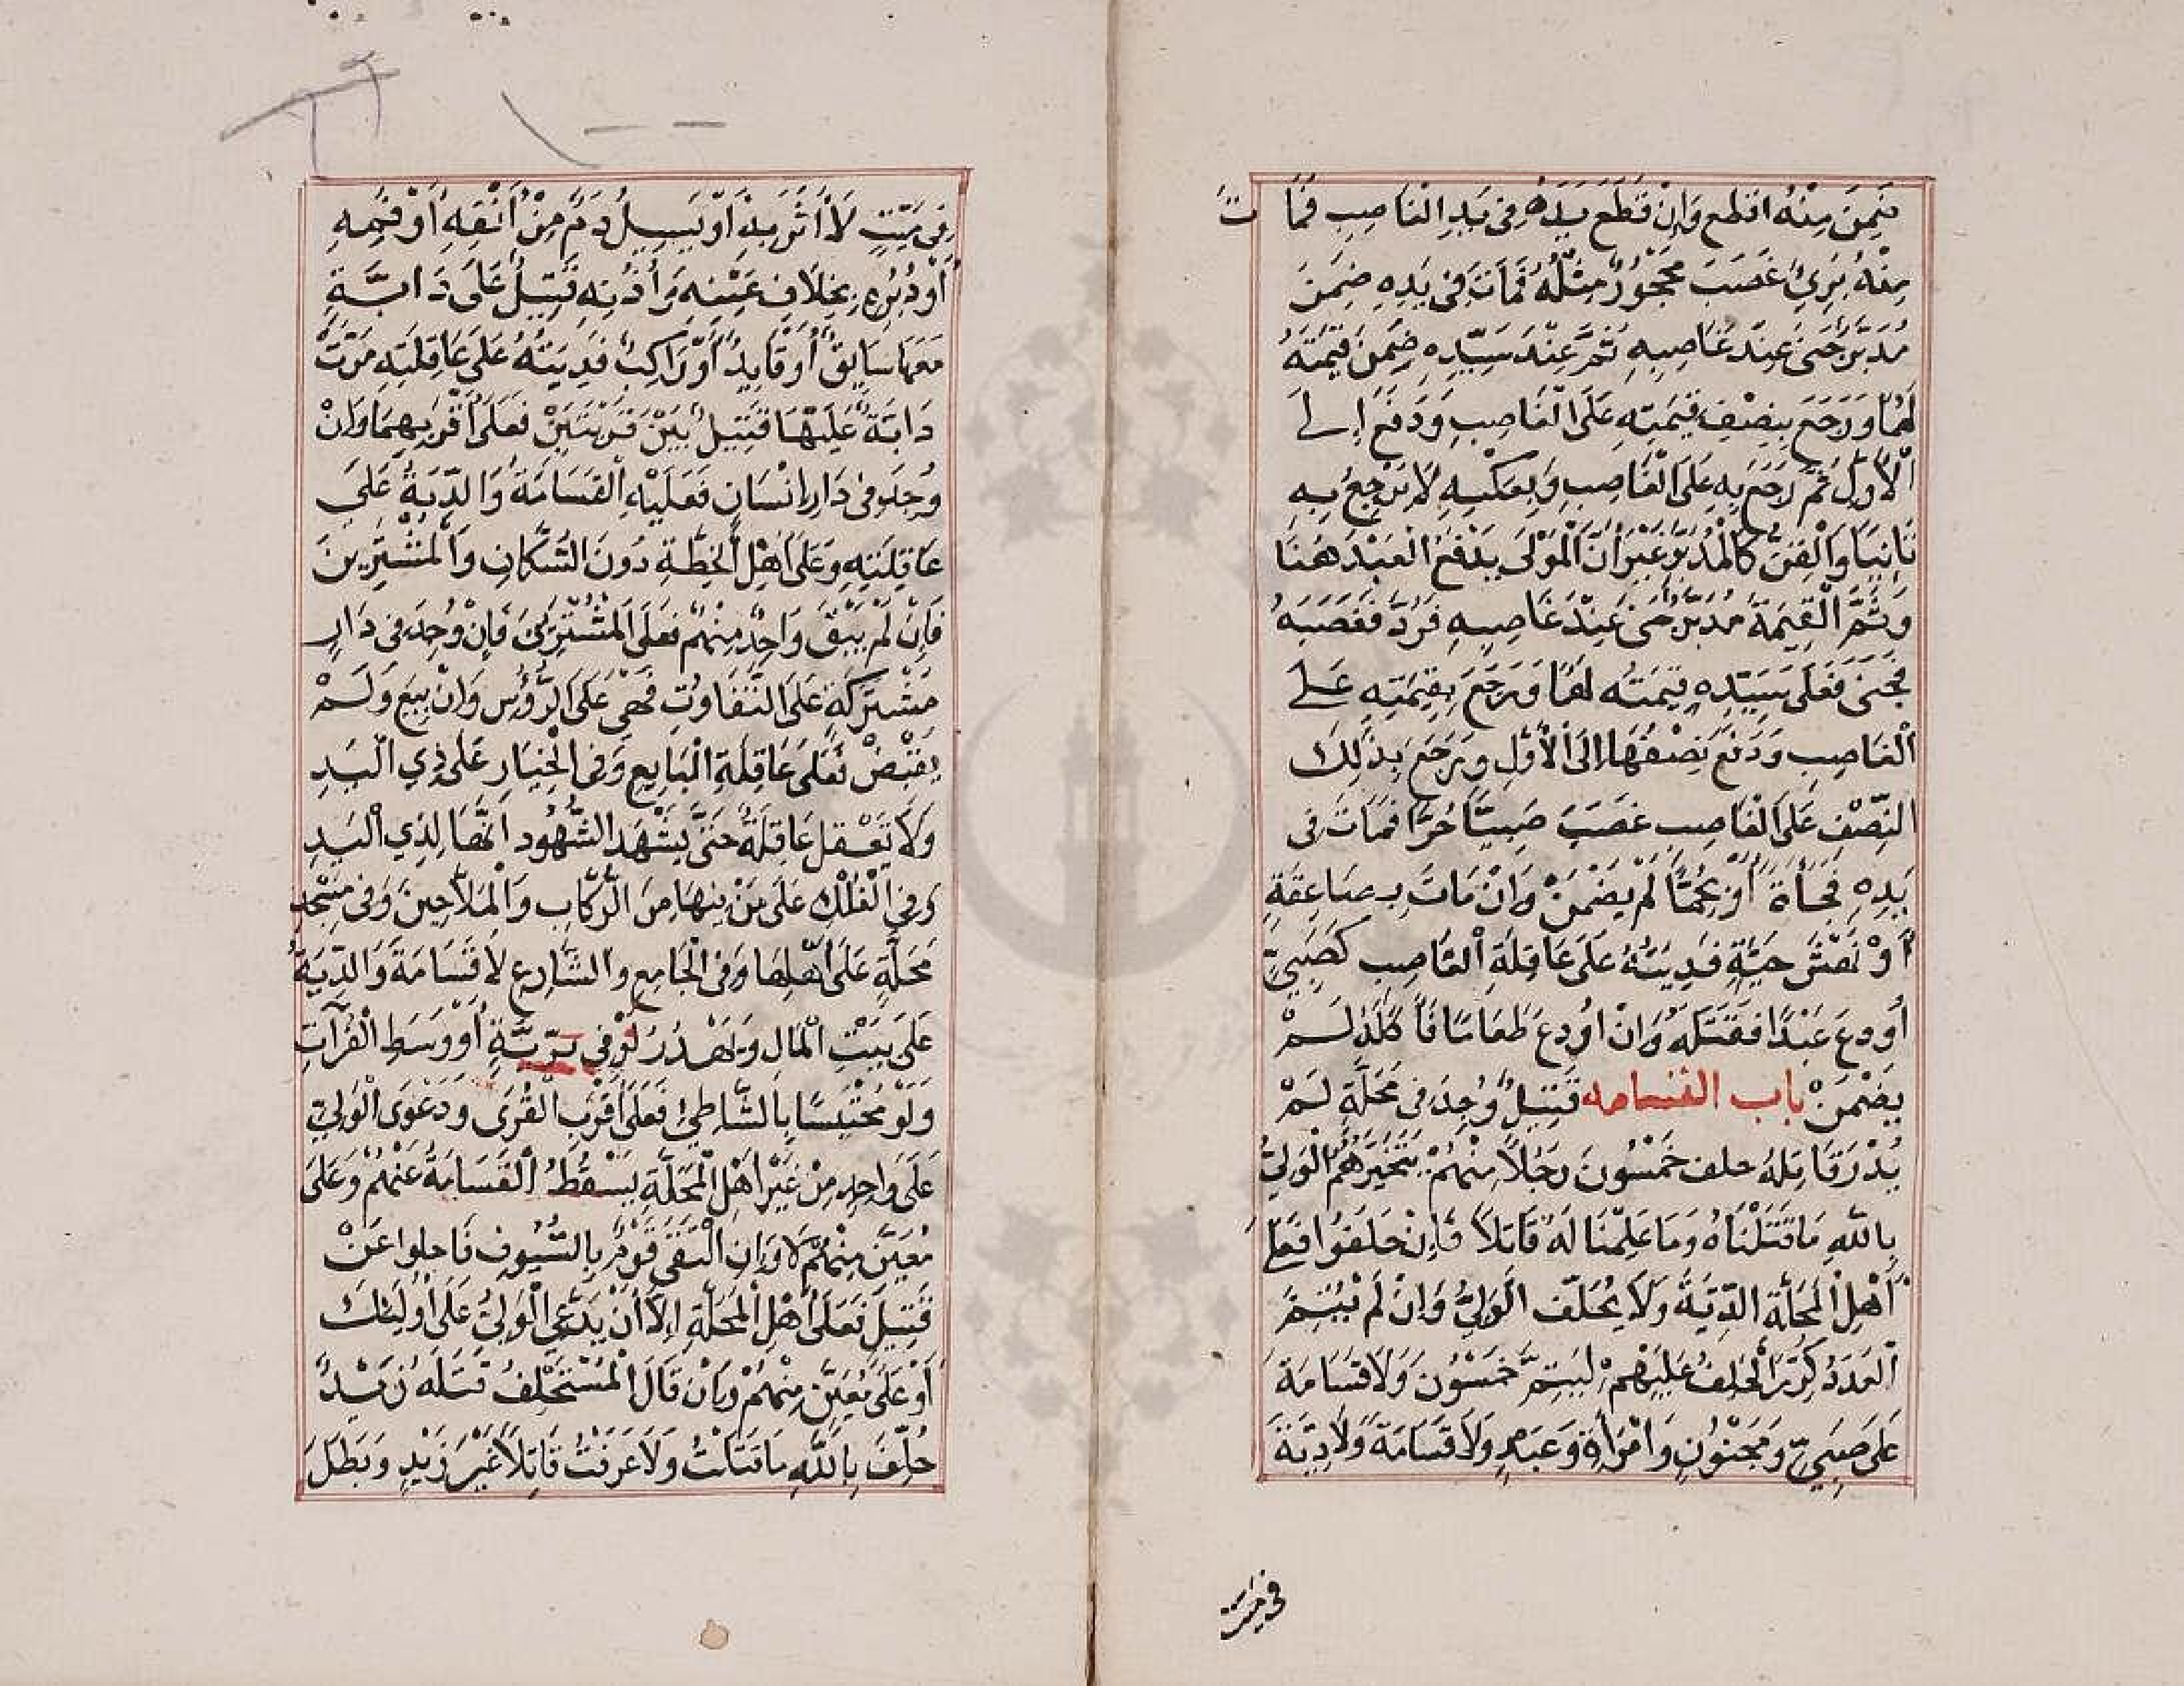 ضَمِنَ مِنْهُ اقطع وَاِنْ قَطَعَ يَدَهُ فِى يَدِ الْغَاصِبِ فَمَاتَ
مِنْهُ بَرِئَ غَصَبَ مَحْجُوْرٌ مِثْلَهُ فَمَاتَ فِى يَدِهِ ضَمِنَ
مُدَبَّرٌ جَنَى عِنْدَ غَاصِبِهِ ثُمَّ عِنْدَ سَيِّدِهِ ضَمِنَ قِيْمَتَهُ
لَهُمَا وَرَجَعَ بِنِصْفِ قِيْمَتِهِ عَلَى الْغَاصِبِ وَدَفَعَ اِلى
الْاَوَّلِ ثُمَّ رَجَعَ بِهِ عَلَى الْغَاصِبِ وَبِعَكْسِهِ لَا يَرْجِعُ بِهِ
ثَانِيًا وَالْقِنُّ كَالْمُدَبَّرِ غَيْرَ اَنَّ الْمَوْلَى يَدْفَعُ الْعَبْدَ هُنَا
وَثَمَّ الْقِيمَةَ مُدَبَّرٌ جَنَى عِنْدَ غَاصِبِهِ فَرَدَّ فَغَصَبَهُ
فَجَنَى فَعَلَى سَيِّدِهِ قِيمَتُه لَهُمَا وَرَجَعَ بِقِيمَتِهِ عَلى
الْغَاصِبِ وَدَفَعَ نِصْفَهَا اِلَى الْاَوَّلِ وَرَجَعَ بِذٰلِكَ
النِّصْفِ عَلَى الْغَاصِبِ غَصَبَ صَبِيًّا حُرًّا فَمَاتَ فِى
يَدِهِ فَجْأَةً أَوْ بِحُمَّى لَمْ يَضْمَنْ وَاِنْ مَاتَ بِصَاعِقَةٍ
أَوْ نَهْشِ حَيَّةٍ فَدِيَتُهُ عَلَى عَاقِلَةِ الْغَاصِبِ كَصَبِيٍّ
أُودِعَ عَبْدًا فَقَتَلَهُ وَاِنْ اُودِعَ طَعَامًا فَأَكَلَهُ لَمْ
يَضْمَنْ باب القسامه قَتِيلٌ وُجِدَ فِى مَحَلَّةٍ لَمْ
يُدْرَ قَاتِلُهُ حلف خَمْسُونَ رَجُلًا مِنْهُمْ يَتَخَيَّرُهُمُ الْوَلِيُّ
بِاللّٰهِ مَا قَتَلْنَاهُ وَمَا عَلِمْنَا لَهُ قَاتِلًا فَاِنْ حَلَفُوا فَعَلى
أَهْلِ الْمَحَلَّةِ الدِّيَةُ وَلَا يُحَلَّفُ الْوَلِيُّ وَاِنْ لَمْ يَتِمَّ
الْعَدَدُ كُرِّرَ الْحَلِفُ عَلَيْهِمْ لِيَتِمَّ خَمْسُونَ وَلَا قَسَامَةَ
عَلَى صَبِيٍّ وَمَجْنُونٍ وَامْرَأَةٍ وَعَبْدٍ وَلَا قَسَامَةَ وَلَا دِيَةَ
فى ميت
فِى مَيِّتٍ لَا اَثَرَ بِهِ أَوْ يَسِيلُ دَمٌ مِنْ أَنْفِهِ أَوْ فَمِهِ
أَوْ دُبُرِهِ بِخِلَافِ عَيْنِهِ وَأُذُنِهِ قَتِيلٌ عَلَى دَابَّةٍ
مَعَهَا سَايِقٌ أَوْ قَايِدٌ أَوْ رَاكِبٌ فَدِيَتُهُ عَلَى عَاقِلَتِهِ مَرَّتْ
دَابَّةٌ عَلَيْهَا قَتِيلٌ بَيْنَ قَرْيَتَيْنِ فَعَلَى أَقْرَبِهِمَا وَاِنْ
وُجِدَ فِى دَارِ اِنْسَانٍ فَعَلَيْهِ الْقَسَامَةُ وَالدِّيَةُ عَلَى
عَاقِلَتِهِ وَعَلَى اَهْلِ الْخِطَّةِ دُونَ السُّكَّانِ وَالْمُشْتَرِينَ
فَاِنْ لَمْ يَبْقَ وَاحِدٌ مِنْهُمْ فَعَلَى الْمُشْتَرِينَ فَاِنْ وُجِدَ فِى دَارٍ
مُشْتَرَكَةٍ عَلَى التَّفَاوُتِ فَهِىَ عَلَى الرُّؤُسِ وَاِنْ بِيعَ وَلَمْ
يُقْبَضْ فَعَلَى عَاقِلَةِ الْبَايِعِ وَفِى الْخِيَارِ عَلَى ذِي الْيَدِ
وَلَا تَعْقِلُ عَاقِلَةٌ حَتَّى يَشْهَدَ الشُّهُودُ اَنَّهَا لِذِي الْيَدِ
وَفِى الْفُلْكِ عَلَى مَنْ فِيهَا مِنَ الرُّكَّابِ وَالْمَلَّاحِينَ وَفِى مَسْجِدِ
مَحَلَّةٍ عَلَى اَهْلِهَا وَفِى الْجَامِعِ وَالشَّارِعِ لَا قَسَامَةَ وَالدِّيَةُ
عَلَى بَيْتِ الْمَالِ وَيُهْدَرُ لَوْ فِى بَرِّيَّةٍ أَوْ وَسَطِ الْفُرَاتِ
وَلَوْ مُحْتَبِسًا بِالشَّاطِئِ فَعَلَى أَقْرَبِ الْقُرَى وَدَعْوَى الْوَلِيِّ
عَلَى وَاحِدٍ مِنْ غَيْرِ اَهْلِ الْمَحَلَّةِ يَسْقُطُ الْقَسَامَةُ عَنْهُمْ وَعَلَى
مُعَيَّنٍ مِنْهُمْ لَا وَاِنِ الْتَقَى قَوْمٌ بِالسُّيُوفِ فَاجلوا عَنْ
قَتِيلٍ فَعَلَى أَهْلِ الْمَحَلَّةِ اِلَّا أَنْ يَدَّعِيَ الْوَلِيُّ عَلَى أُولَئِكَ
أَوْ عَلَى مُعَيَّنٍ مِنْهُمْ وَاِنْ قَالَ الْمُسْتَحْلَفُ قَتَلَهُ زَيْدٌ
حُلِّفَ بِاللّٰهِ مَا قَتَلْتُ وَلَا عَرَفْتُ قَاتِلًا غَيْرَ زَيْدٍ وَبَطَلَ